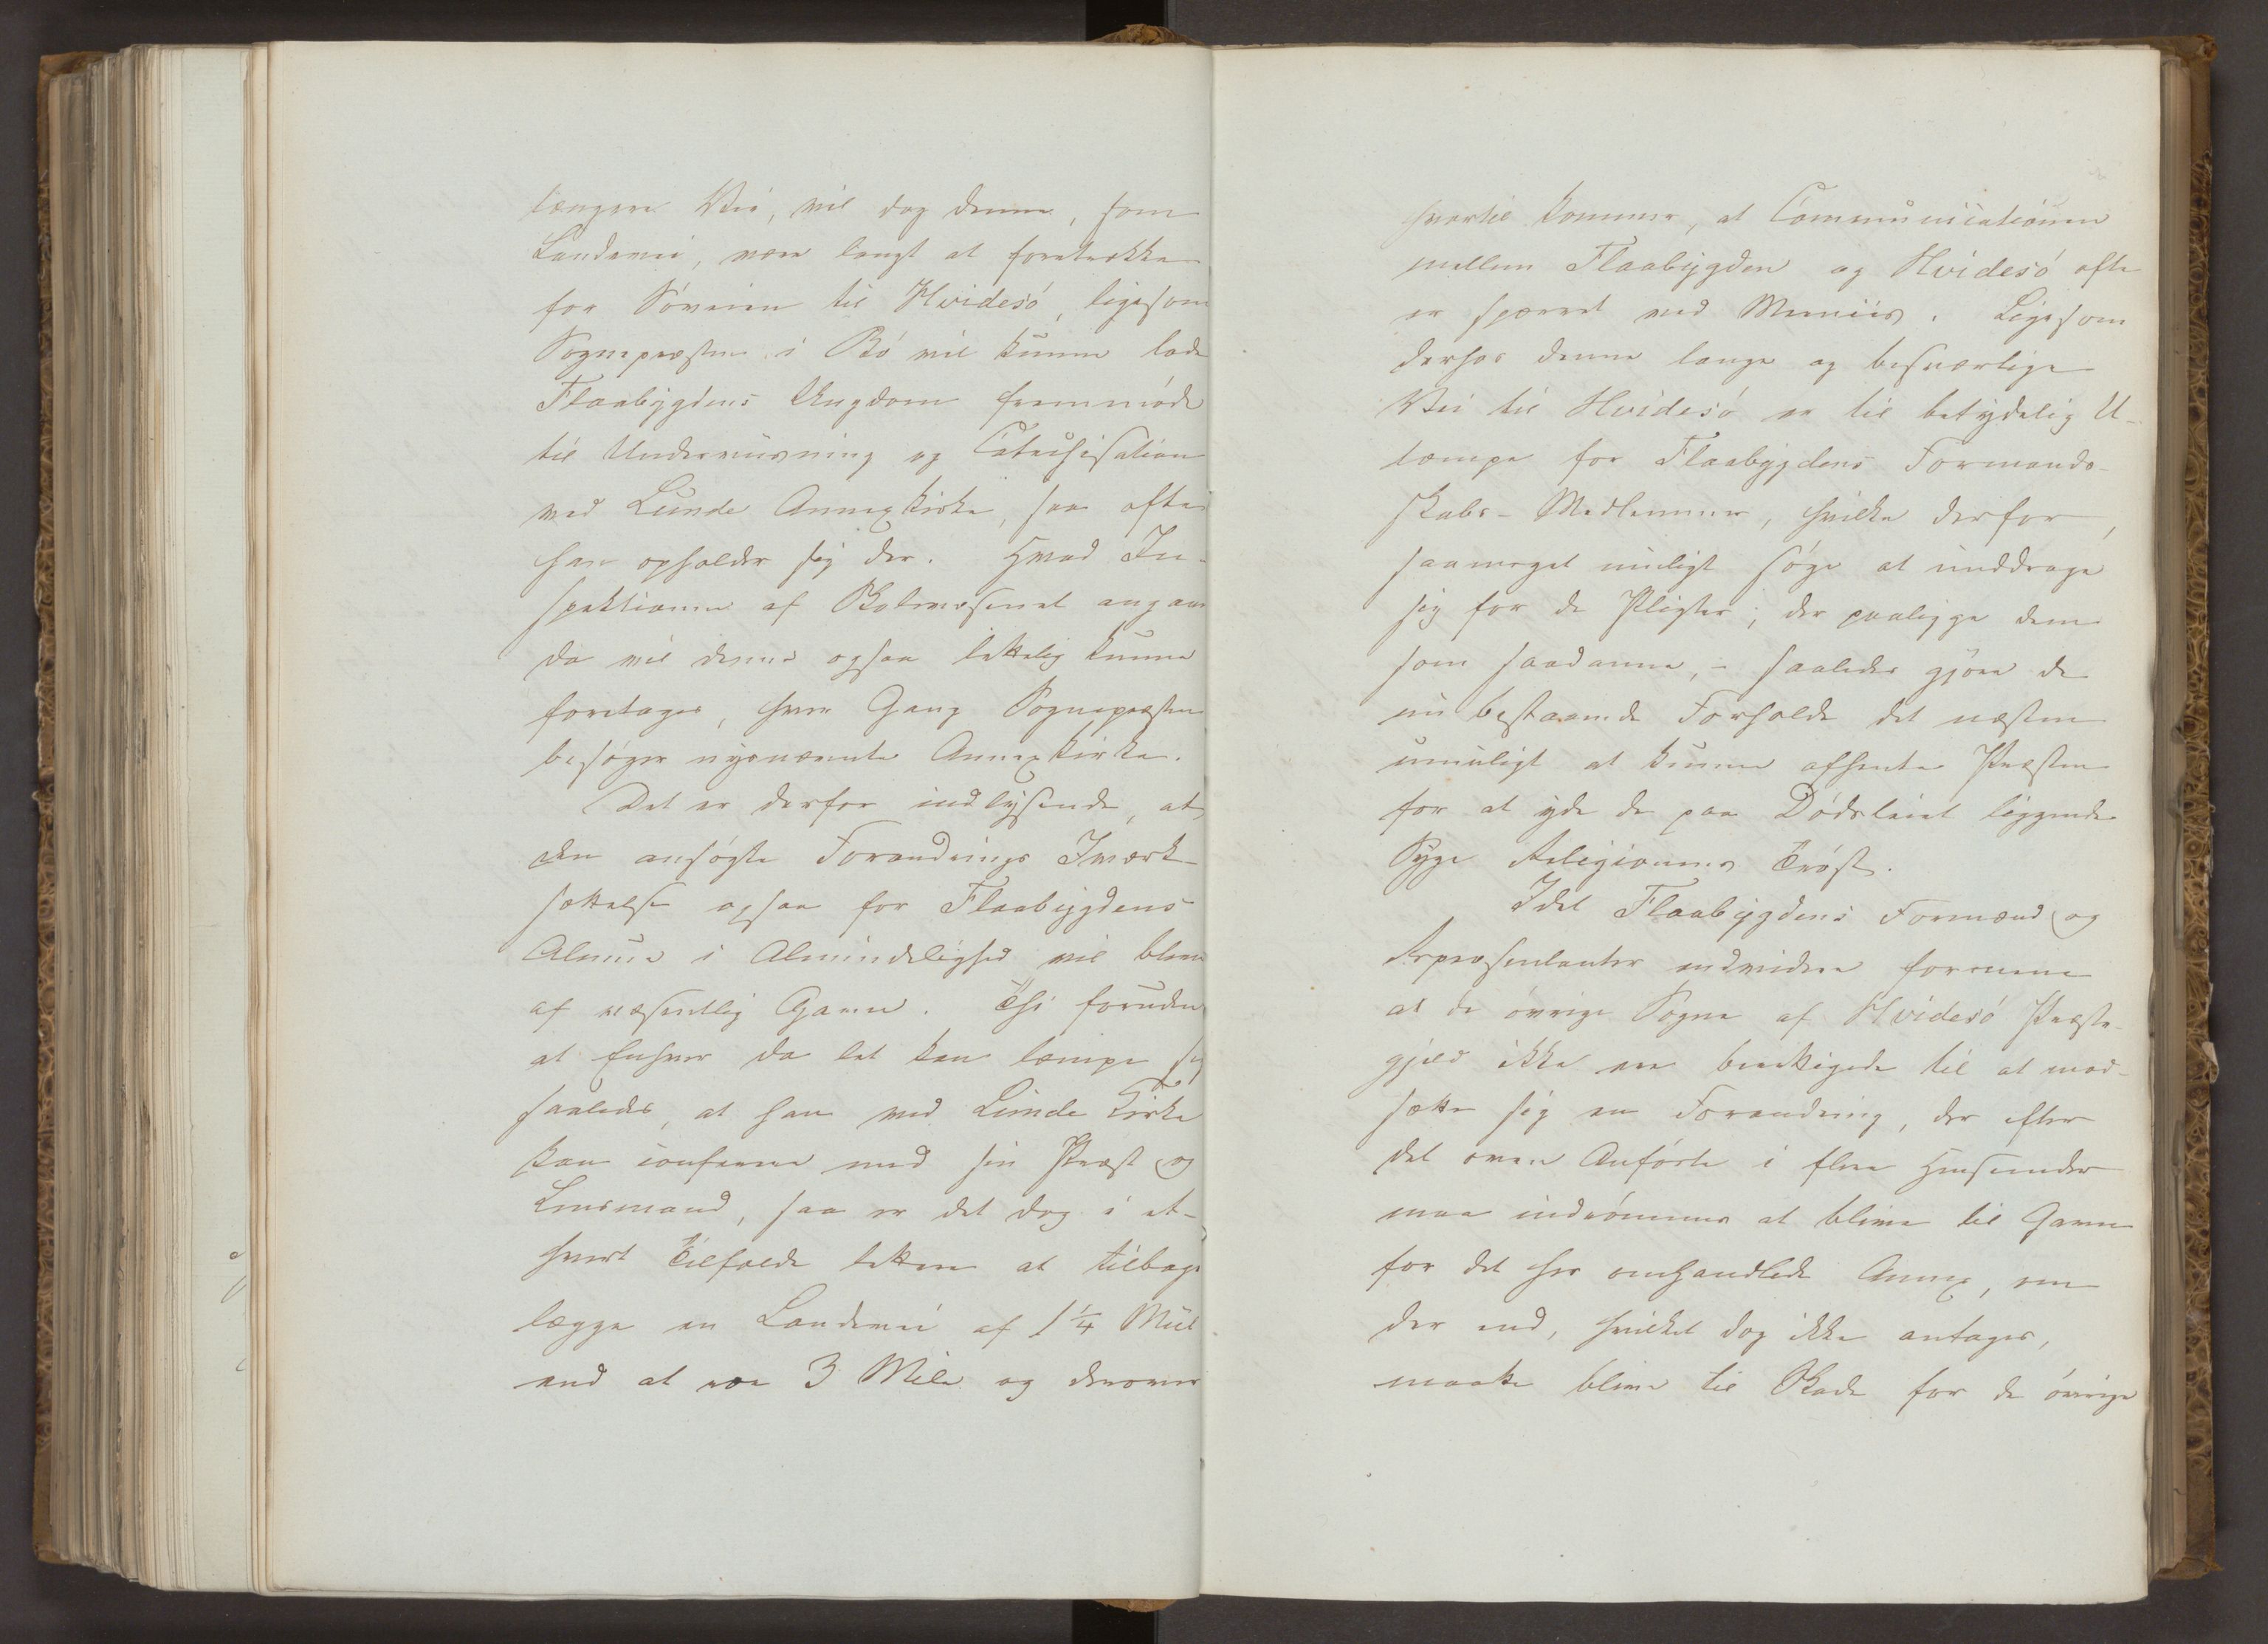 længere Vei, vil dog denne, som
Landevei, være langt at foretrække
for Søveien til Hvidesø, ligesom
Sognepræsten i Bø vil kunne lade
Flaabygdens Ungdom fremmøde
til Underviisning og Catechisation
ved Lunde Annexkirke, saa ofte
han opholder sig der. Hvad In-
spektionen af Skolevæsenet angaaer
da vil denne ogsaa lettelig kunne
foretages, hver Gang Sognepræsten
besøger nysnævnte Annexkirke.
Det er derfor indlysende, at
den ansøgte Forandrings Iværk-
sættelse ogsaa for Flaabygdens
Almue i Almindelighed vil blive
af væsentlig Gavn. Thi foruden
at Enhver da let kan lempe sig
saaledes, at han ved Lunde Kirke
kan conferere med sin Præst og
Lensmand, saa er det dog i et-
hvert Tilfælde lettere at tilbage
lægge en Landevei af 1 1/4 Miil
end at roe 3 Mile og derover
hvortil kommer, at Communicationen
mellem Flaabygden og Hvidesø ofte
er spærret ved Meniis. Ligesom
derhos denne lange og besværlige
Vei til Hvidesø er til betydelig U-
lempe for Flaabygdens Formands-
skabs-Medlemmer, hvilke derfor,
saameget muligt søge at unddrage
sig for de Pligter, der paaligge dem
som saadanne, - saaledes gjøre de
nu bestaaende Forholde det næsten
umuligt at kunne afhente Præsten
for at yde de paa Dødsleiet liggende
Syge Religionens Trøst.
Idet Flaabygdens Formænd og
Repræsentanter endvidere formene
at de øvrige Sogne af Hvidesø Præste-
gjeld ikke ere berettigede til at mod-
sætte sig en Forandring, der efter
det oven Anførte i flere Henseender
maa indrømmes at blive til Gavn
for det her omhandlede Annex, om
der end, hvilket dog ikke antages,
maatte blive til Skade for de øvrige